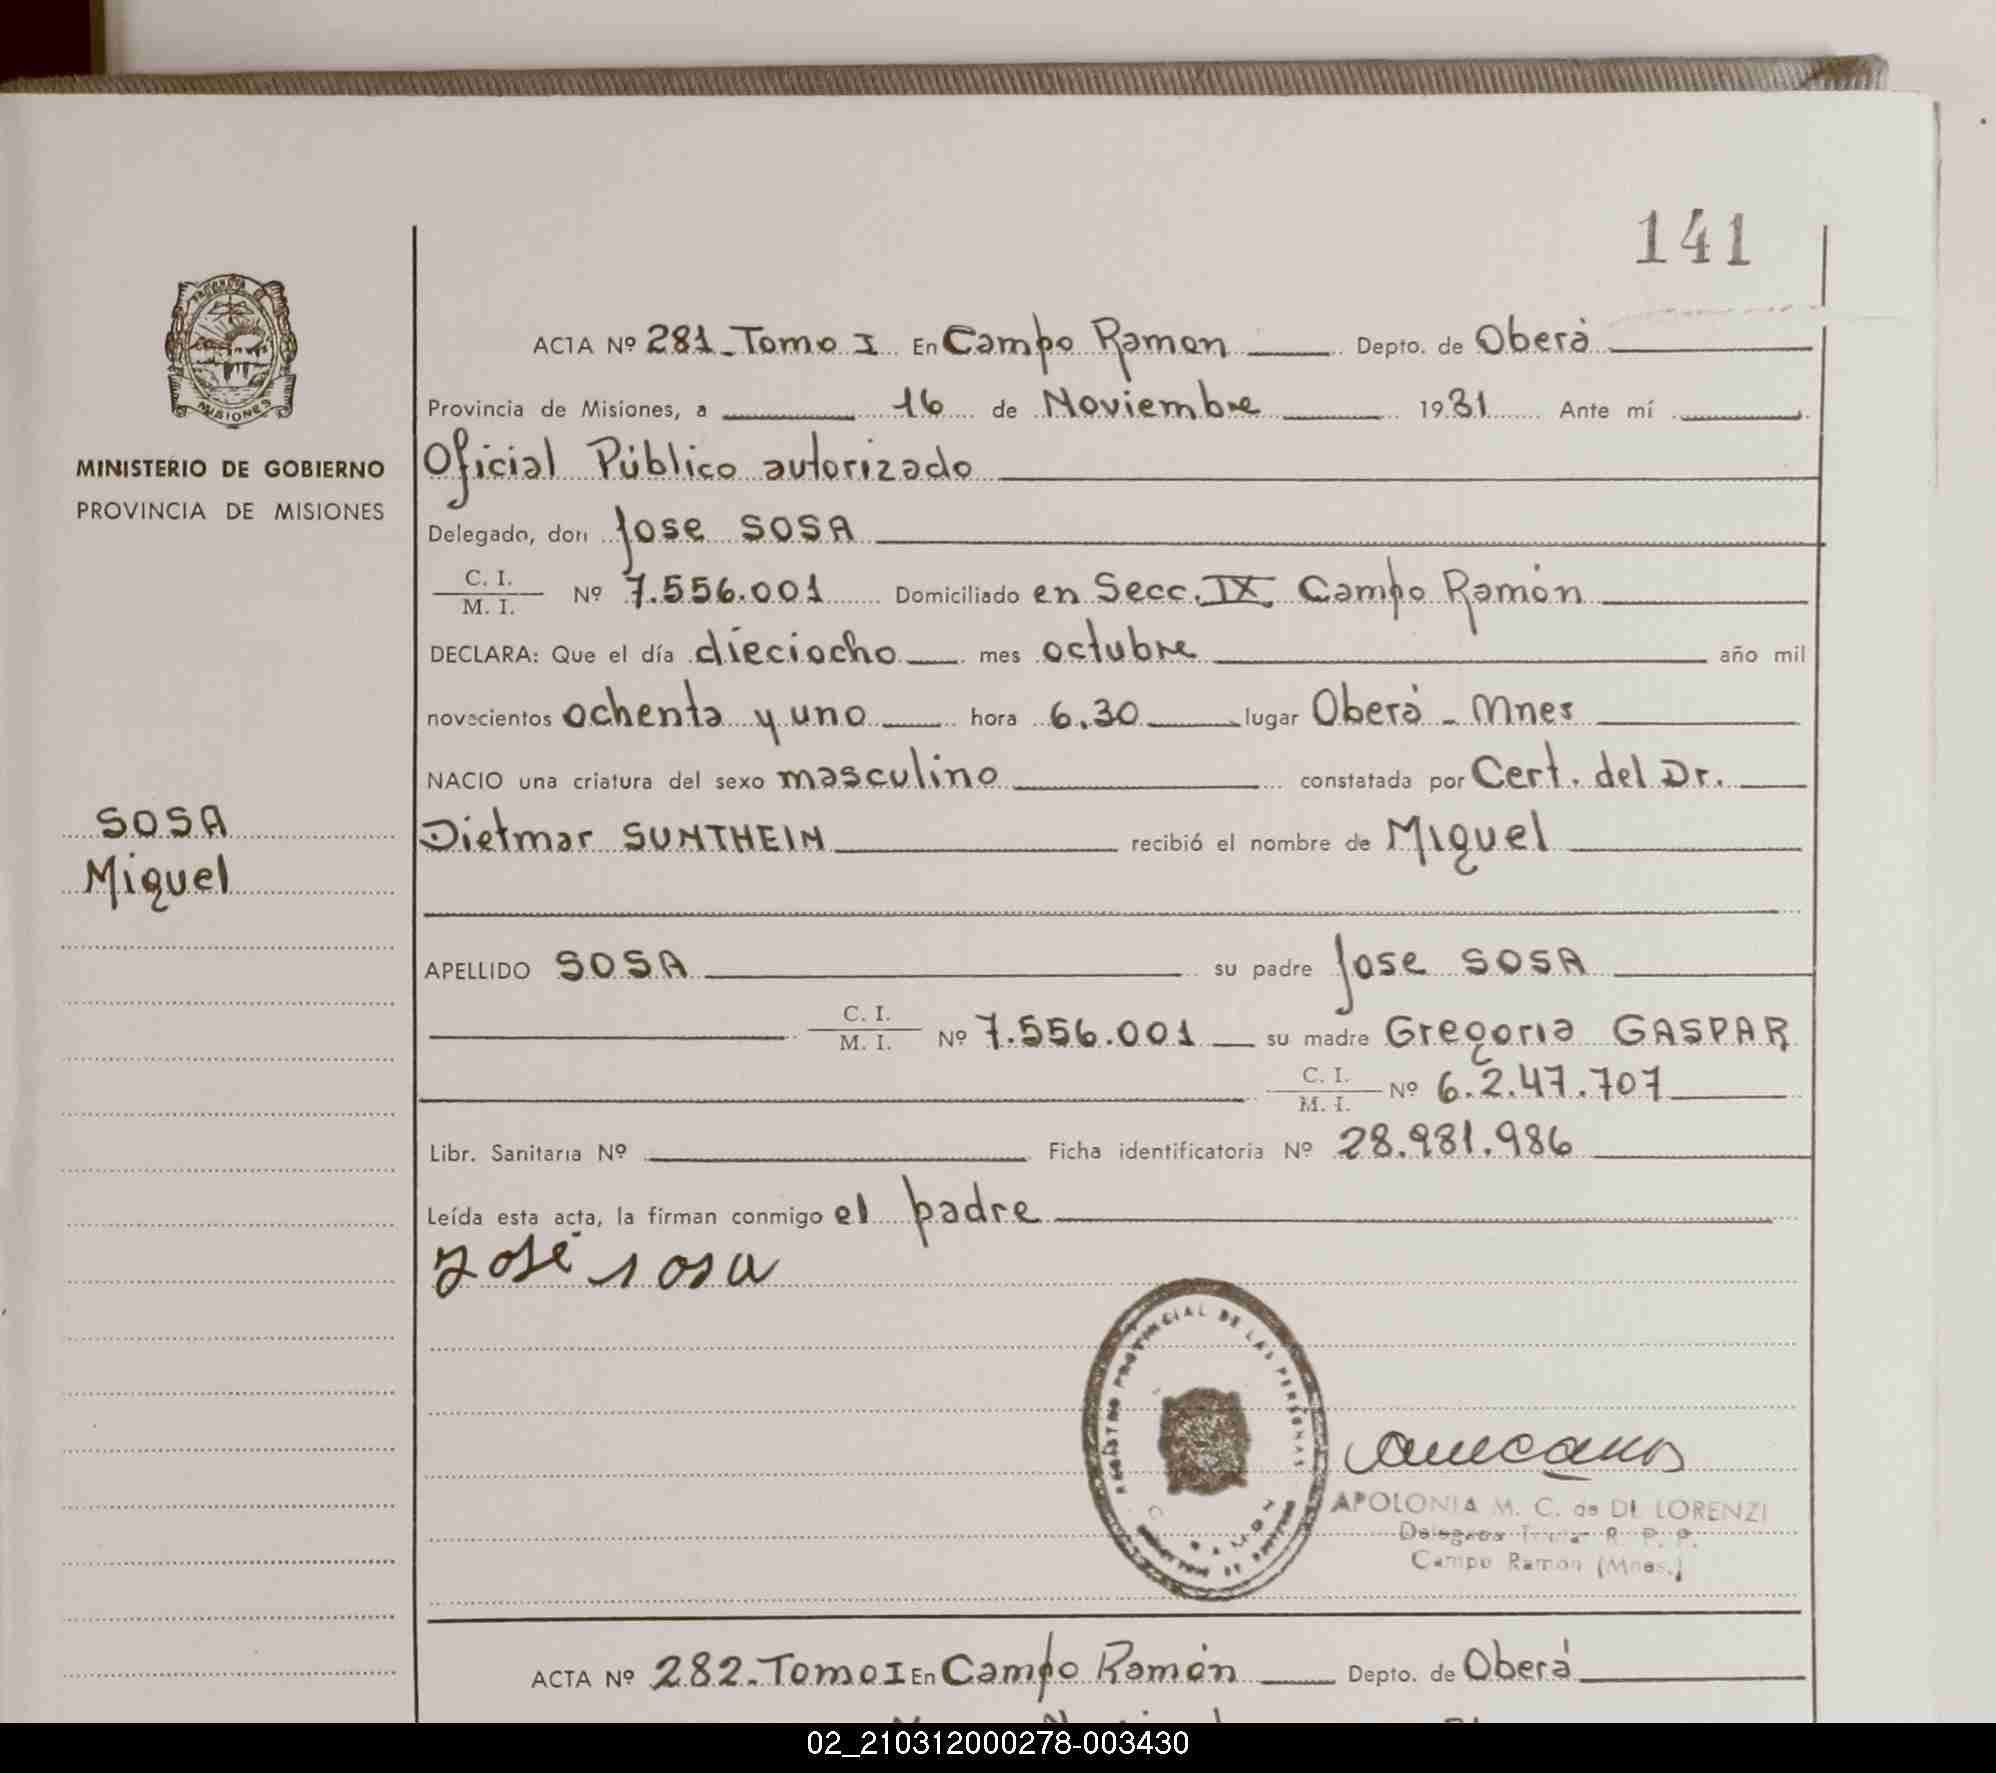 141
ACTA Nº 281 - Tomo I En Campo Ramon Depto. de Oberá
Provincia de Misiones, a 16 de Noviembre 1981 Ante mí
MINISTERIO DE GOBIERNO
PROVINCIA DE MISIONES
Oficial Público autorizado
Delegado, don Jose SOSA
C. I.
M. I. Nº 7.556.001 Domiciliado en Secc. IX Campo Ramón
DECLARA: Que el día dieciocho mes octubre año mil
novecientos ochenta y uno hora 6.30 lugar Oberá - Mnes
NACIO una criatura del sexo masculino constatada por Cert. del Dr.
SOSA
Miguel
Dietmar SUNTHEIN recibió el nombre de Miguel
APELLIDO SOSA su padre Jose SOSA
C. I.
M. I. Nº 7.556.001 su madre Gregoria GASPAR
C. I.
M. I. Nº 6.247.707
Libr. Sanitaria Nº Ficha identificatoria Nº 28.981.986
Leída esta acta, la firman conmigo el padre
José sosa
REGISTRO PROVINCIAL DE LAS PERSONAS
MISIONES
APOLONIA M. C. de DI LORENZI
R. P. P.
Campo Ramon (Mnes.)
ACTA Nº 282 - Tomo I En Campo Ramón Depto. de Oberá
02_210312000278-003430